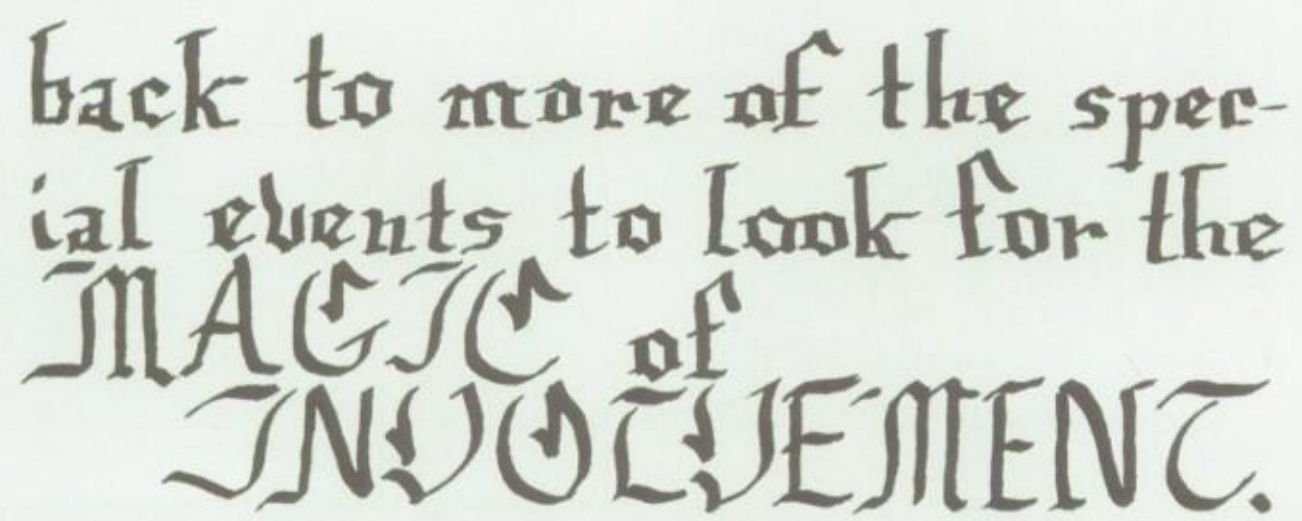 back to more of the spec-
ial events to look for the
MAGIC of
INVOLVEMENT.